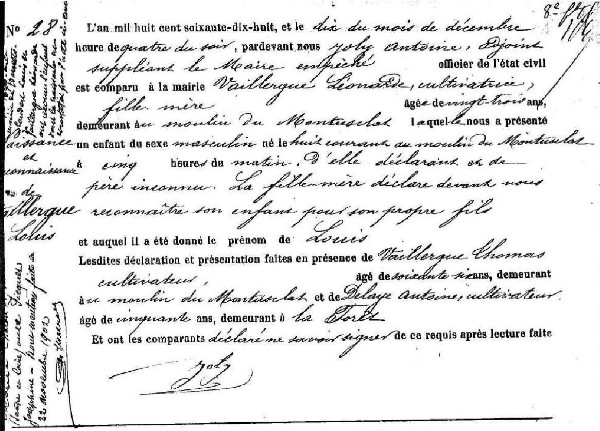 No 28
L'an mil huit cent soixante-dix-huit, et le dix du mois de décembre
heure de quatre du soir, pardevant nous Joly Antoine, Adjoint
suppliant le Maire empêché officier de l'état civil
est comparu à la mairie Vaillergue Léonarde, cultivatrice,
fille mère âgée de vingt trois ans,
demeurant au moulin du Montusclat laquelle nous a présenté
un enfant du sexe masculin né le huit courant au moulin du Montusclat
à cinq heures du matin. D'elle déclarant et de
père inconnu. La fille-mère déclare devant nous
reconnaître son enfant pour son propre fils
et auquel il a été donné le prénom de Louis
Lesdites déclaration et présentation faites en présence de Vaillergue Thomas
cultivateur, âgé de soixante six ans, demeurant
au moulin du Montusclat et de Delaye Antoine, cultivateur
âgé de cinquante ans, demeurant à la Foret
Et ont les comparants déclaré ne savoir signer de ce requis après lecture faite
Joly
naissance
et
reconnaissance
de
Vaillergue
Louis
22 novembre 1902